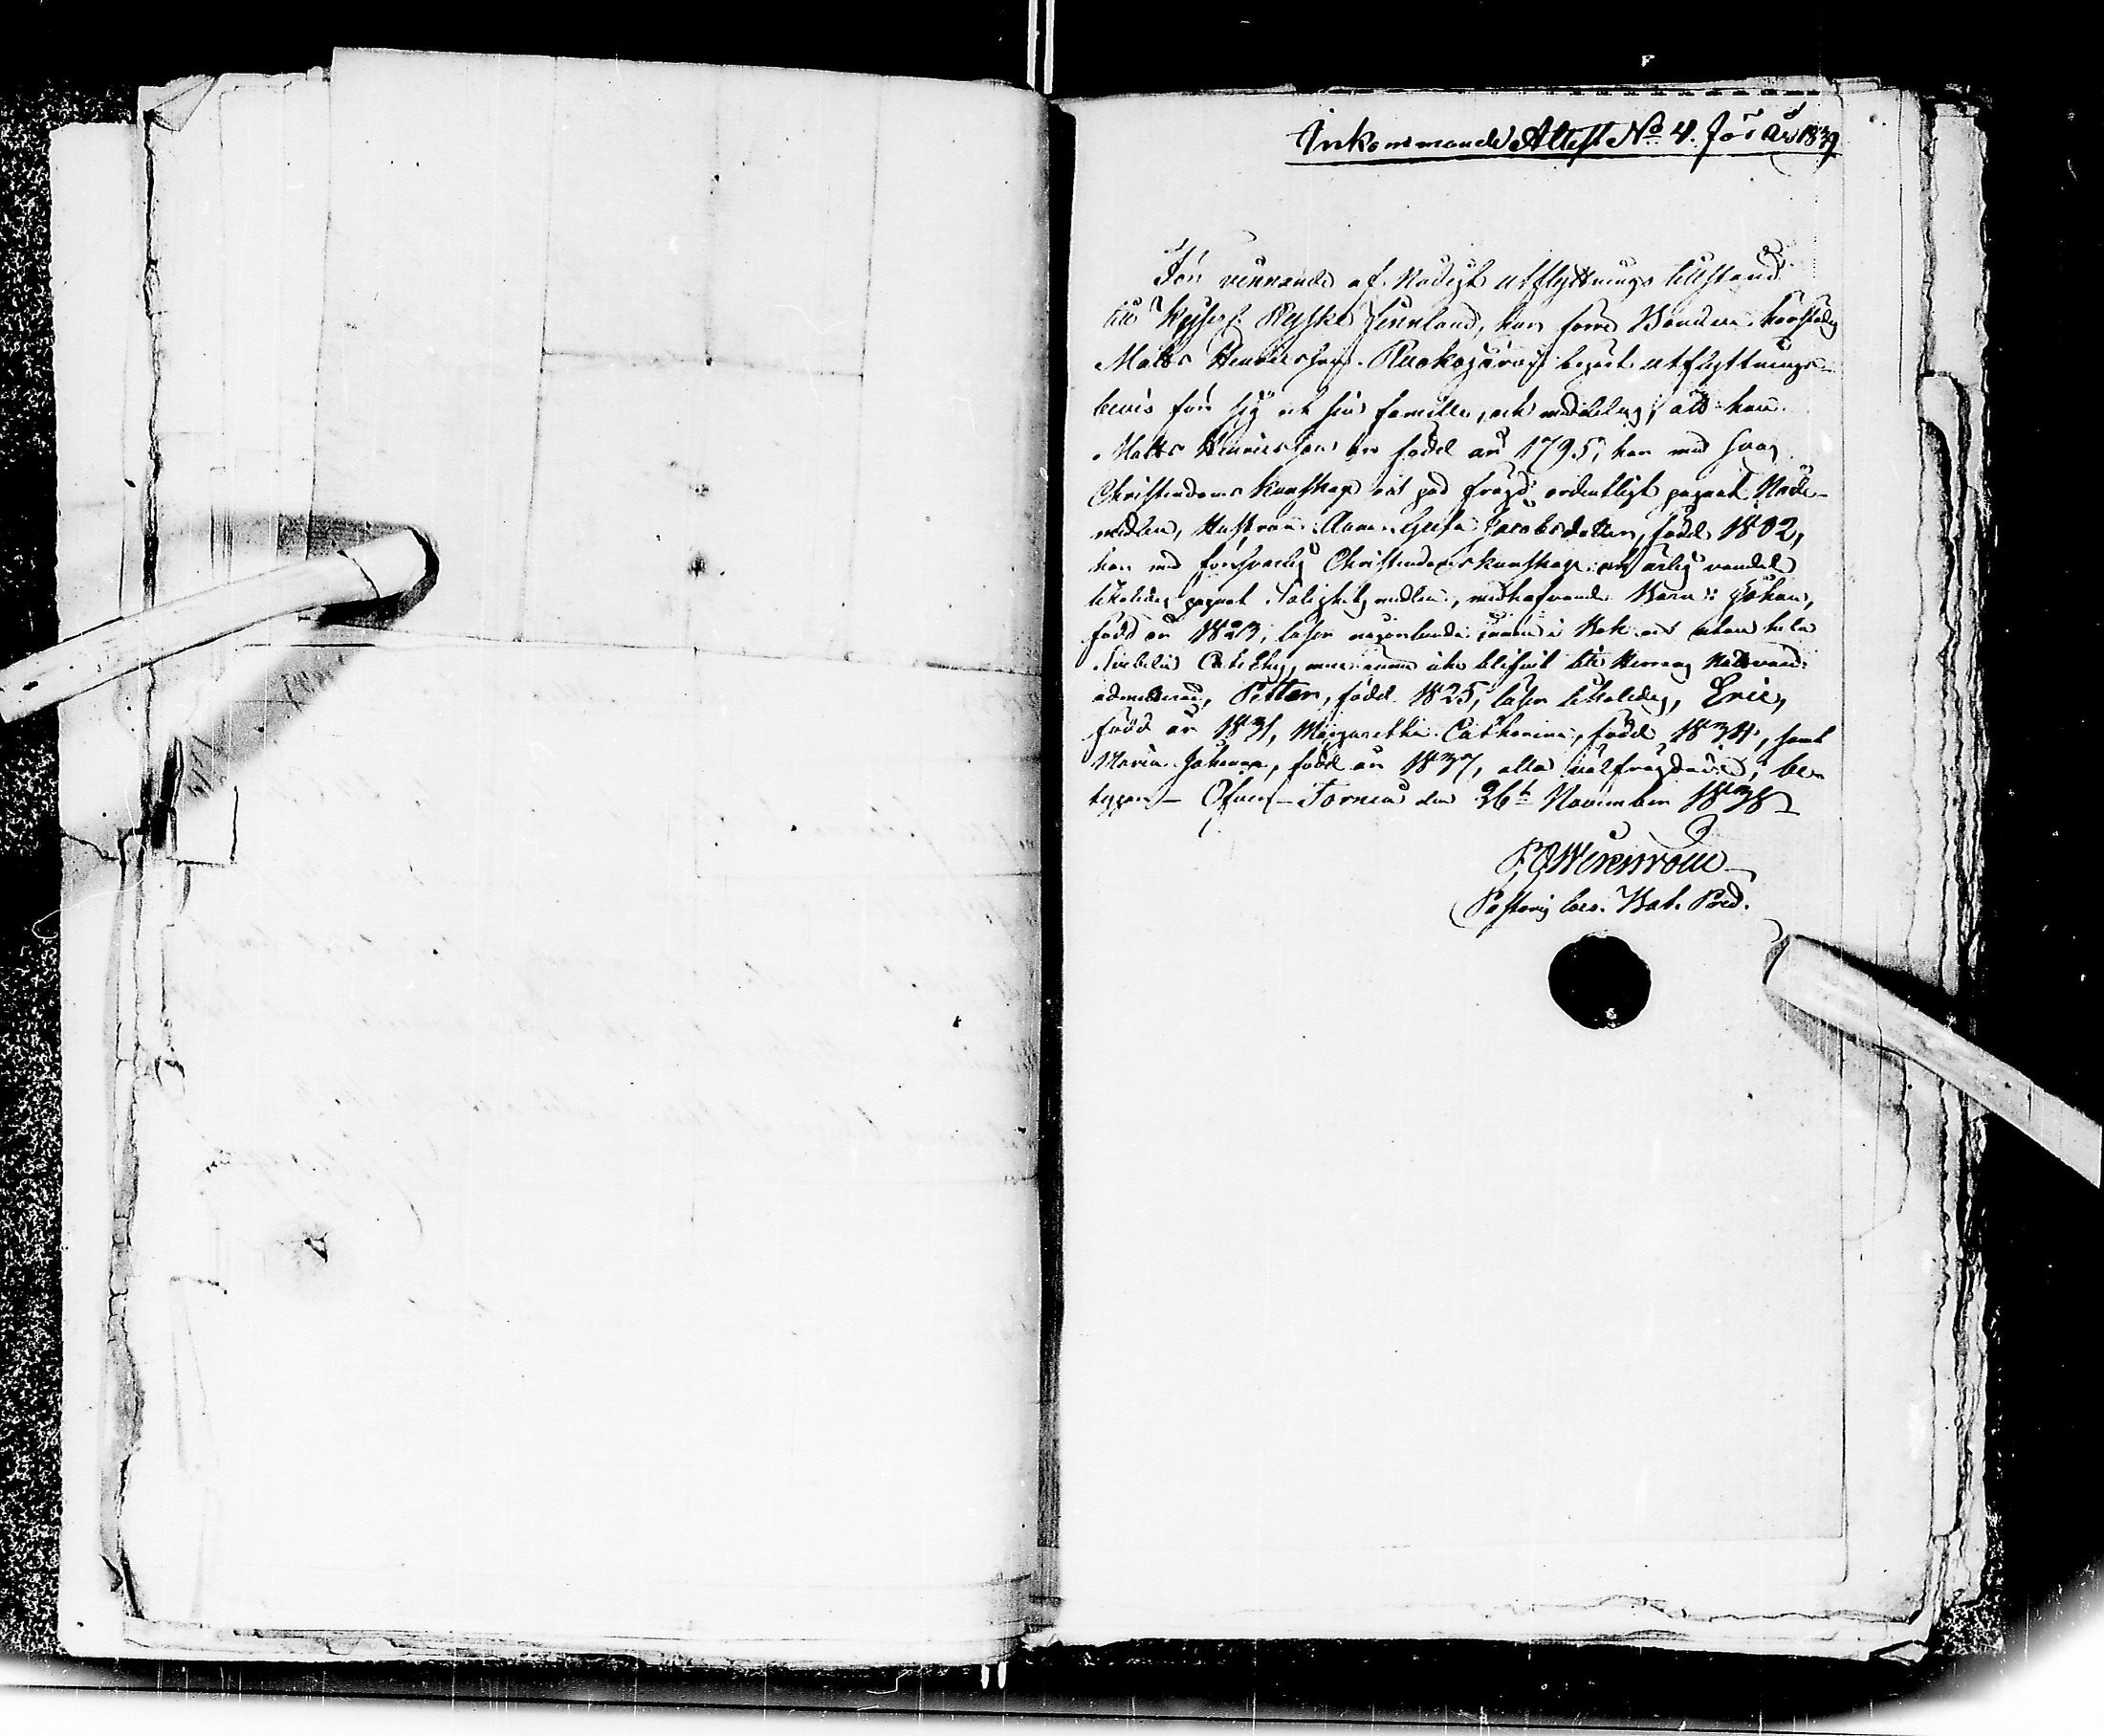 Inkommande Attest No 4. för år 1839
För vinnande af Nådigt utflyttnings tillstånd
till Kejserl Ryska Finnland, har förre Bonden
Matts Henricsson Ruokojärvi begärt utflyttnings-
bevis för sig och sin famille, och meddelas, att han
Matts Henricsson är född år 1795, har med svag
Christendoms kunskap och god frägd ordentligt begått Nåde-
medlen, Hustrun Anna Greta Jacobsdotter, född 1802,
har med försvarlig Christendomskunskap och ärlig vandel
likaledes begått Salighets medlen, medhafvande Barn: Johan,
född år 1823, läser någorlunda innan i Bok och utan hela
Svebelii Cateches, men ännu icke blifvit till Herrans Nattvard
admitterad, Petter, född 1825, läser likaledes, Eric,
född år 1831, Margaretha Catharina, född 1834, samt
Maria Johanna, född år 1837, alla välfrägdade, be-
tygar Öfver-Torneå den 26te November 1838
Pastoris loco. Bat. Pred.